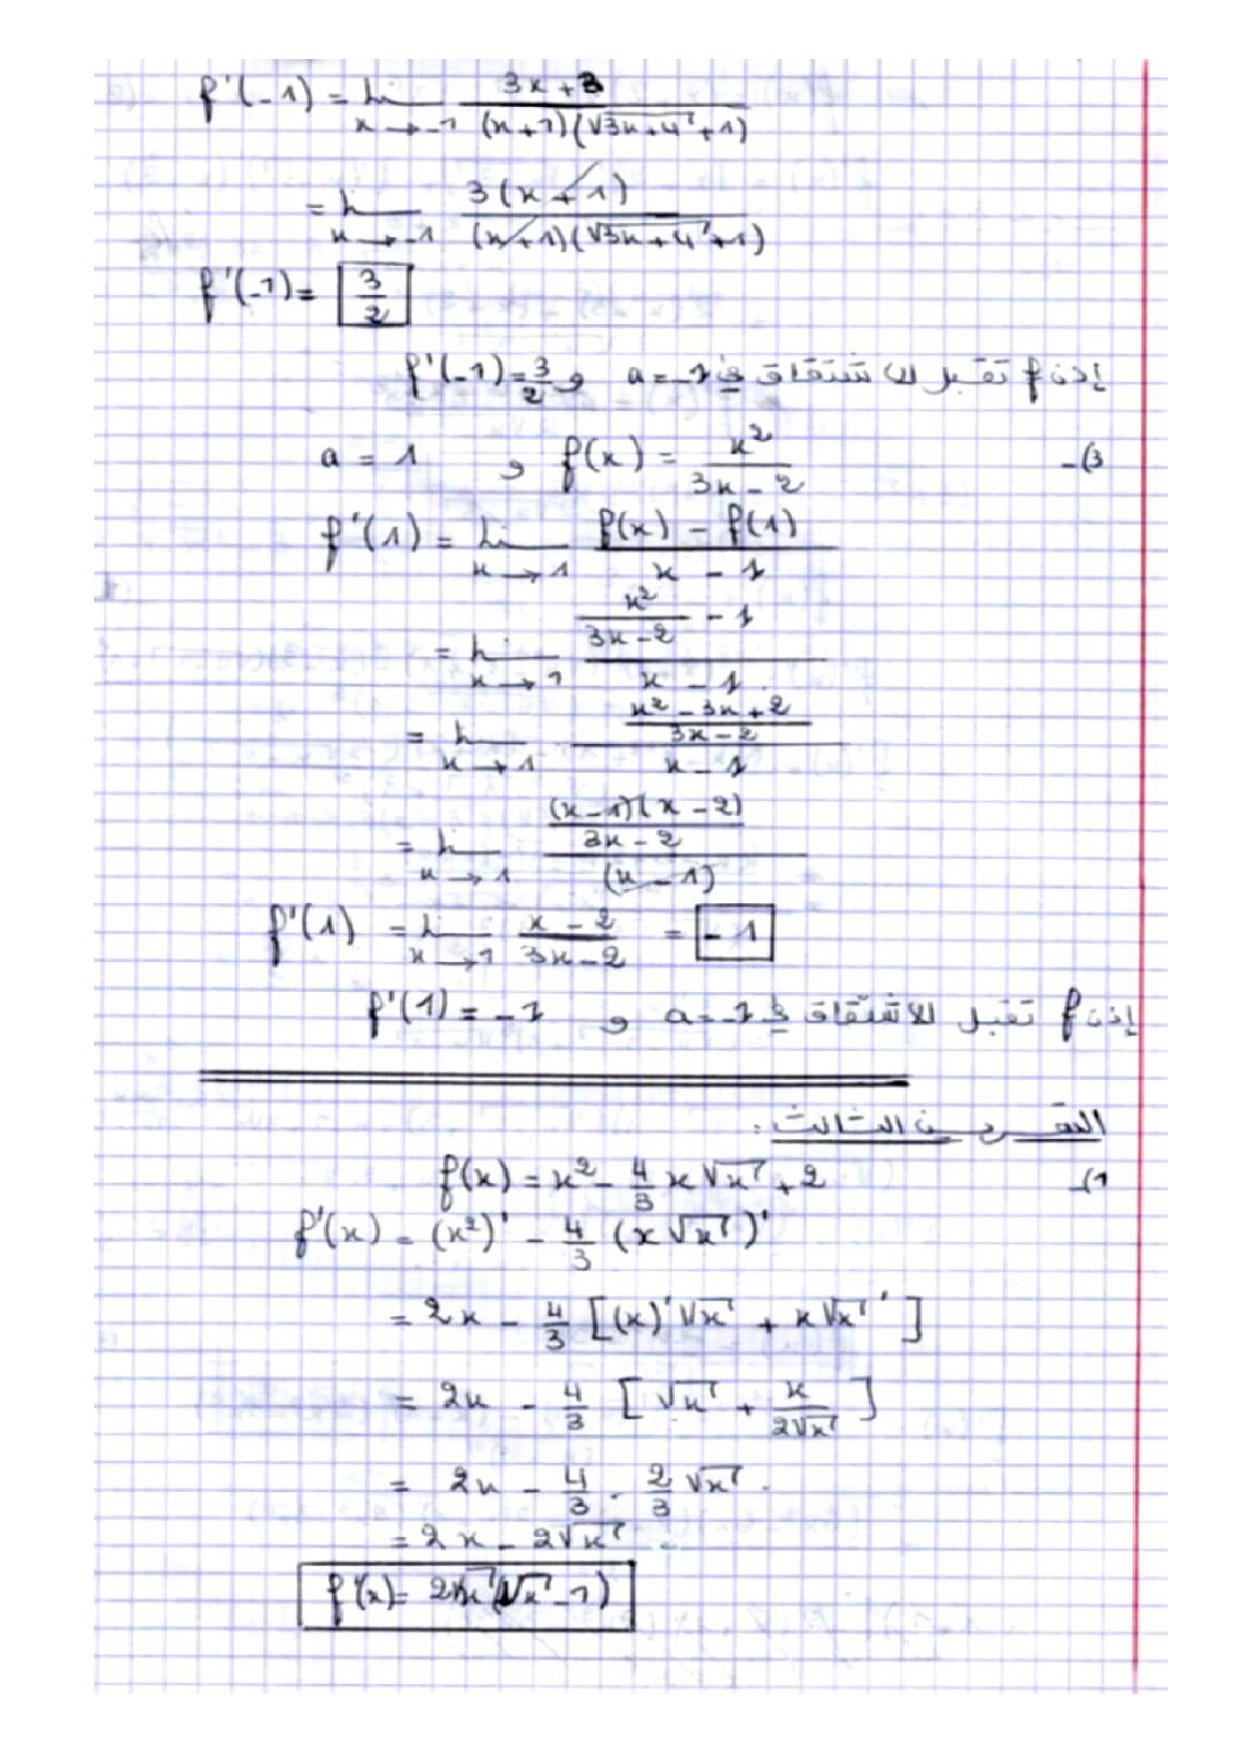 f'(-1) = lim x→-1 (3x+3)/((x+1)(√(3x+4)+1))
= lim x→-1 3(x+1)/((x+1)(√(3x+4)+1))
f'(-1) = 3/2
إذن f تقبل الاشتقاق في a=-1 و f'(-1)=3/2
3)- f(x) = x²/(3x-2) و a = 1
f'(1) = lim x→1 (f(x) - f(1))/(x - 1)
= lim x→1 (x²/(3x-2) - 1)/(x - 1)
= lim x→1 ((x² - 3x + 2)/(3x-2))/(x - 1)
= lim x→1 ((x-1)(x-2)/(3x-2))/(x-1)
f'(1) = lim x→1 (x-2)/(3x-2) = -1
إذن f تقبل الاشتقاق في a=-1 و f'(1) = -1
التمرين الثالث:
1)- f(x) = x² - 4/3 x√x + 2
f'(x) = (x²)' - 4/3 (x√x)'
= 2x - 4/3 [(x)'√x + x√x']
= 2x - 4/3 [√x + x/(2√x)]
= 2x - 4/3 . 2/3 √x
= 2x - 2√x
f'(x) = 2√x(√x - 1)